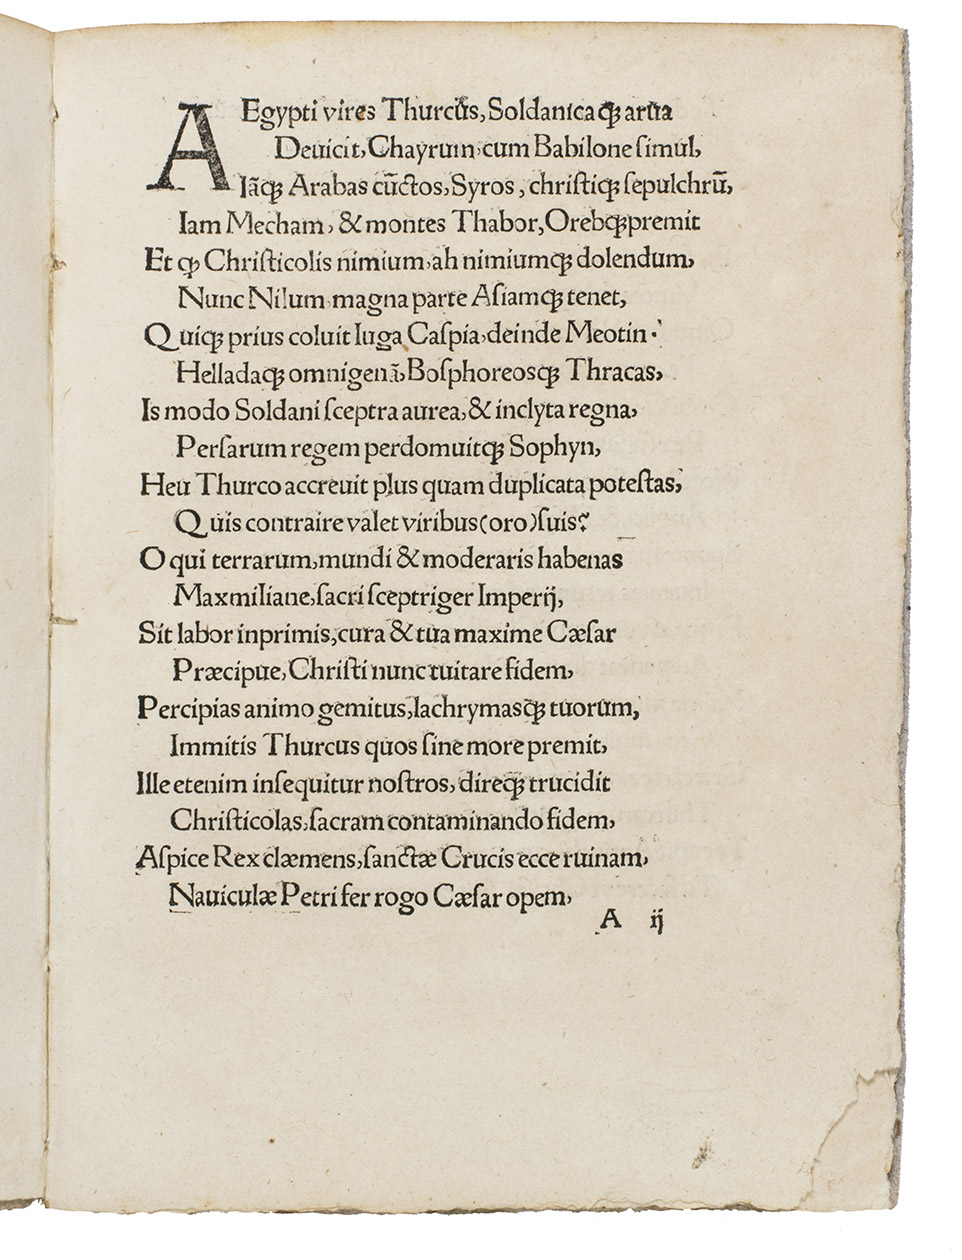 AEgypti vires Thurcus, Soldanicaꝗ arua
Deuicit, Chayrum, cum Babilone ſimul,
Iāꝗ Arabas cūctos, Syros, chriſtiꝗ ſepulchrū,
Iam Mecham, & montes Thabor, Orebꝗ premit
Et ꝙ Chriſticolis nimium, ah nimiumꝗ dolendum,
Nunc Nilum magna parte Aſiamꝗ tenet,
Quiꝗ prius coluit Iuga Caſpia, deinde Meotin.
Helladaꝗ omnigenā, Boſphoreosꝗ Thracas,
Is modo Soldani ſceptra aurea, & inclyta regna,
Perſarum regem perdomuitꝗ Sophyn,
Heu Thurco accreuit plus quam duplicata poteſtas,
Quis contraire valet viribus (oro) ſuis?
O qui terrarum, mundi & moderaris habenas
Maxmiliane, ſacri ſceptriger Imperij,
Sit labor inprimis, cura & tua maxime Cæſar
Præcipue, Chriſti nunc tuitare fidem,
Percipias animo gemitus, lachrymasꝗ tuorum,
Immitis Thurcus quos ſine more premit,
Ille etenim inſequitur noſtros, direꝗ trucidit
Chriſticolas, ſacram contaminando fidem,
Aſpice Rex clæmens, ſanctæ Crucis ecce ruinam,
Nauiculæ Petri fer rogo Cæſar opem,
A ij